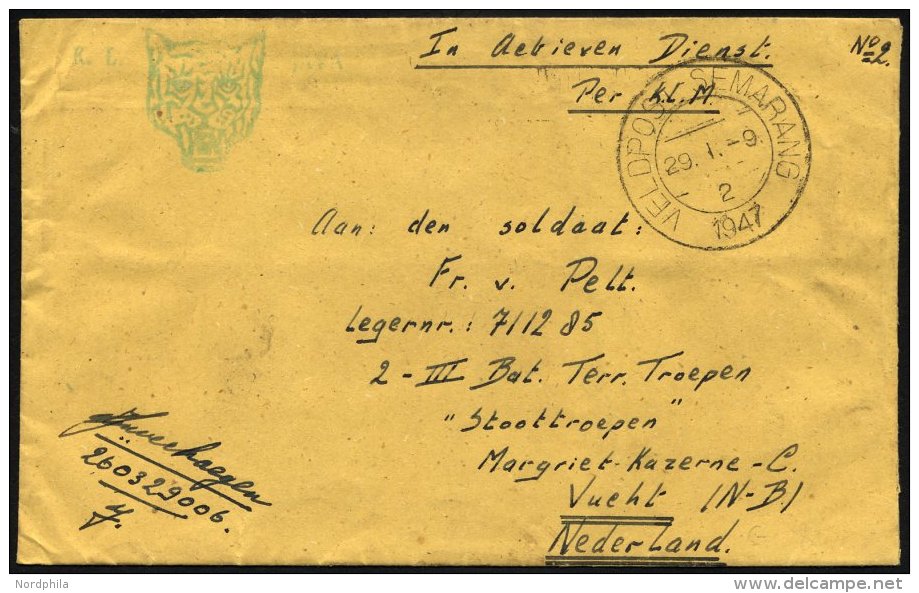 In Actieven Dienst.
Nº 2.
Per K.L.M.
VELDPOST SEMARANG
29. 1. -9
2
1947
Aan: den soldaat:
Fr. v. Pelt.
Legernr.: 711285
2 - III Bat. Terr. Troepen
"Stoottroepen"
Margriet-Kazerne-C.
Vucht (N-B.)
Nederland.
260329006.
Nordphila
www.delcampe.net